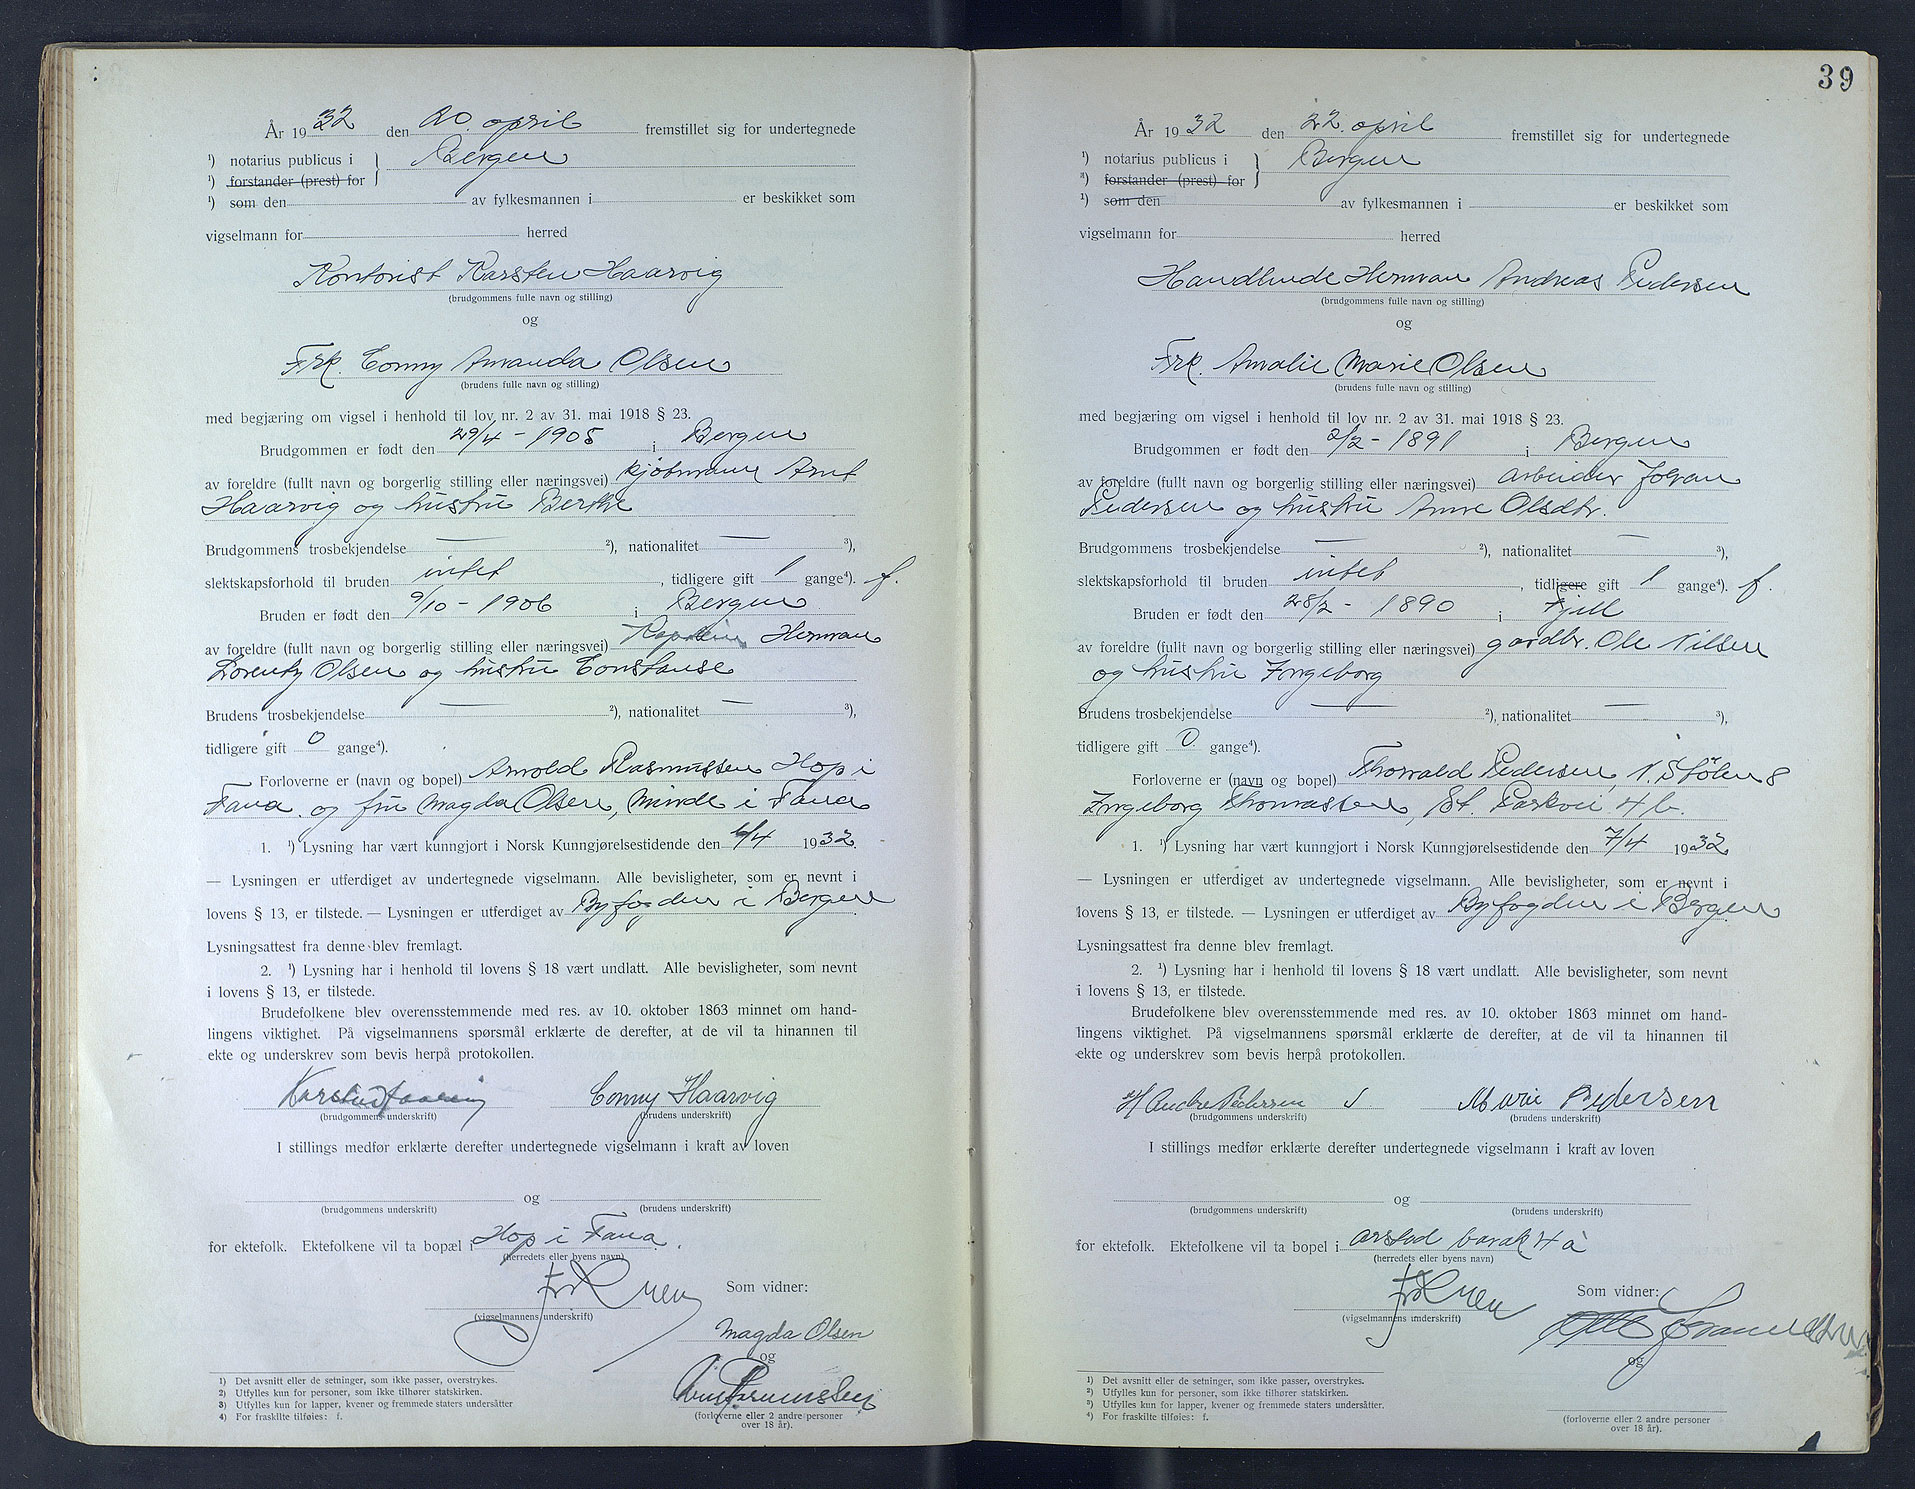 År 1932 den 20. april fremstillet sig for undertegnede
¹) notarius publicus i } Bergen
¹) forstander (prest) for
¹) som den av fylkesmannen i er beskikket som
vigselmann for herred
Kontorist Karsten Haarvig
(brudgommens fulle navn og stilling)
og
Frk. Conny Amanda Olsen
(brudens fulle navn og stilling)
med begjæring om vigsel i henhold til lov nr. 2 av 31. mai 1918 § 23.
Brudgommen er født den 29/4 - 1905 i Bergen
av foreldre (fullt navn og borgerlig stilling eller næringsvei) kjøbmann Arnt
Haarvig og hustru Berthe
Brudgommens trosbekjendelse — ²), nationalitet — ³),
slektskapsforhold til bruden intet, tidligere gift 1 gange⁴). f.
Bruden er født den 9/10 - 1906 i Bergen
av foreldre (fullt navn og borgerlig stilling eller næringsvei) Kaptein Herman
Lorentz Olsen og hustru Constanse
Brudens trosbekjendelse — ²), nationalitet — ³),
tidligere gift 0 gange⁴).
Forloverne er (navn og bopel) Arnold Rasmussen Hop i
Fana. og fru Magda Olsen, Minde i Fana
1. ¹) Lysning har vært kunngjort i Norsk Kunngjørelsestidende den 6/4 1932.
— Lysningen er utferdiget av undertegnede vigselmann. Alle bevisligheter, som er nevnt i
lovens § 13, er tilstede. — Lysningen er utferdiget av Byfogden i Bergen.
Lysningsattest fra denne blev fremlagt.
2. ¹) Lysning har i henhold til lovens § 18 vært undlatt. Alle bevisligheter, som nevnt
i lovens § 13, er tilstede.
Brudefolkene blev overensstemmende med res. av 10. oktober 1863 minnet om hand-
lingens viktighet. På vigselmannens spørsmål erklærte de derefter, at de vil ta hinannen til
ekte og underskrev som bevis herpå protokollen.
Karsten Haarvig Conny Haarvig
(brudgommens underskrift) (brudens underskrift)
I stillings medfør erklærte derefter undertegnede vigselmann i kraft av loven
og
(brudgommens underskrift) (brudens underskrift)
for ektefolk. Ektefolkene vil ta bopæl i Hop i Fana.
(herredets eller byens navn)
Som vidner:
(vigselmannens underskrift)
Magda Olsen
og
(forloverne eller 2 andre personer
over 18 år).
1) Det avsnitt eller de setninger, som ikke passer, overstrykes.
2) Utfylles kun for personer, som ikke tilhører statskirken.
3) Utfylles kun for lapper, kvener og fremmede staters undersåtter
4) For fraskilte tilføies: f.
39
År 1932 den 22. april fremstillet sig for undertegnede
¹) notarius publicus i } Bergen
²) forstander (prest) for
¹) som den av fylkesmannen i er beskikket som
vigselmann for herred
Handlende Herman Andreas Pedersen
(brudgommens fulle navn og stilling)
og
Frk. Amalie Marie Olsen
(brudens fulle navn og stilling)
med begjæring om vigsel i henhold til lov nr. 2 av 31. mai 1918 § 23.
Brudgommen er født den 2/2 - 1891 i Bergen
av foreldre (fullt navn og borgerlig stilling eller næringsvei) arbeider Johan
Pedersen og hustru Anne Olsdtr.
Brudgommens trosbekjendelse — ²), nationalitet — ³),
slektskapsforhold til bruden intet, tidligere gift 1 gange⁴). f.
Bruden er født den 28/2 - 1890 i Fjell
av foreldre (fullt navn og borgerlig stilling eller næringsvei) gardbr. Ole Nilsen
og hustru Ingeborg
Brudens trosbekjendelse — ²), nationalitet — ³),
tidligere gift 0 gange⁴).
Forloverne er (navn og bopel) Thorvald Pedersen, N. Stølen 8
Ingeborg Thomassen, St. Parkvei 4 b.
1. ¹) Lysning har vært kunngjort i Norsk Kunngjørelsestidende den 7/4 1932
— Lysningen er utferdiget av undertegnede vigselmann. Alle bevisligheter, som er nevnt i
lovens § 13, er tilstede. — Lysningen er utferdiget av Byfogden i Bergen
Lysningsattest fra denne blev fremlagt.
2. ¹) Lysning har i henhold til lovens § 18 vært undlatt. Alle bevisligheter, som nevnt
i lovens § 13, er tilstede.
Brudefolkene blev overensstemmende med res. av 10. oktober 1863 minnet om hand-
lingens viktighet. På vigselmannens spørsmål erklærte de derefter, at de vil ta hinannen til
ekte og underskrev som bevis herpå protokollen.
H Andr Pedersen Marie Pedersen
(brudgommens underskrift) (brudens underskrift)
I stillings medfør erklærte derefter undertegnede vigselmann i kraft av loven
og
(brudgommens underskrift) (brudens underskrift)
for ektefolk. Ektefolkene vil ta bopel i Arstad barak 4 a
(herredets eller byens navn)
Som vidner:
(vigselmannens underskrift)
og
(forloverne eller 2 andre personer
over 18 år).
¹) Det avsnitt eller de setninger, som ikke passer, overstrykes.
²) Utfylles kun for personer, som ikke tilhører statskirken.
³) Utfylles kun for lapper, kvener og fremmede staters undersåtter.
⁴) For fraskilte tilføies: f.